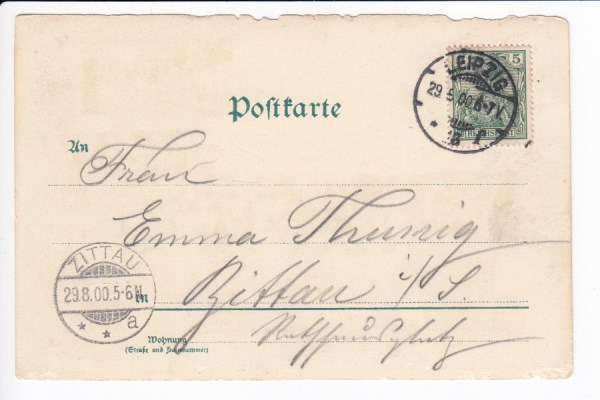 5
LEIPZIG
29.5.00.6-7V.
* 13 f.
REICHSPOST
Postkarte
An
Frau
Emma
ZITTAU
29.8.00.5-6N
* * a
in
Zittau i/S.
Wohnung
(Straße und Hausnummer)